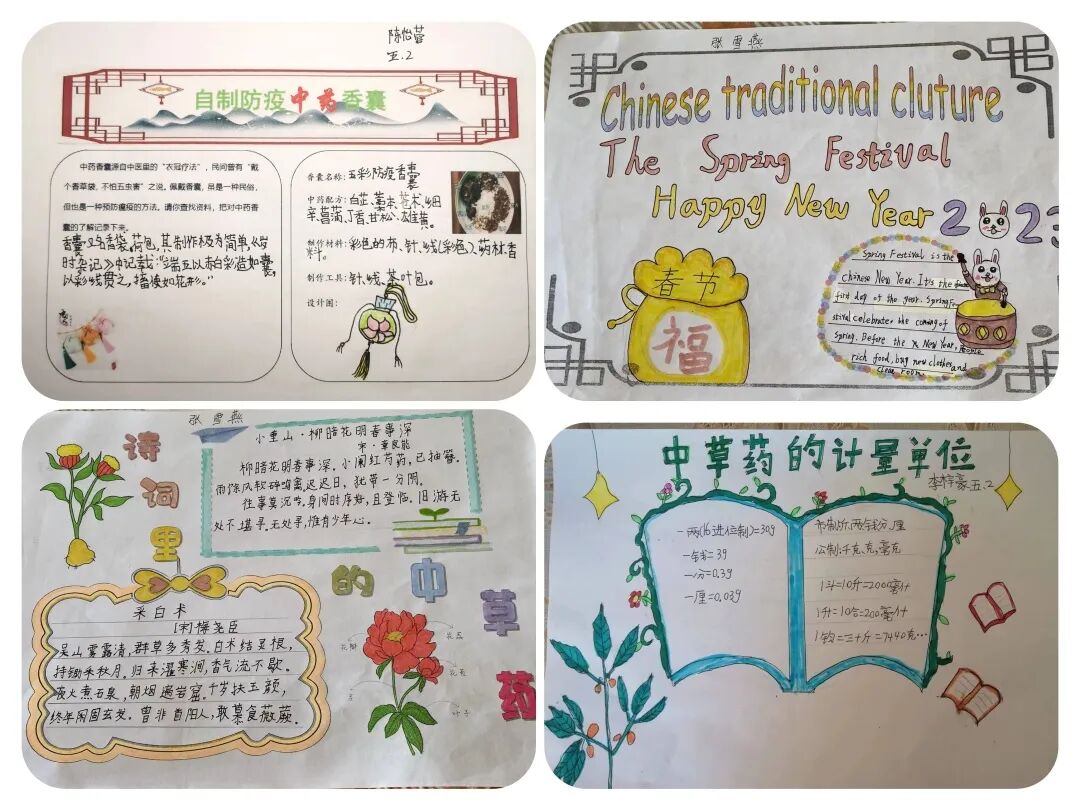 陈怡蓉
五.2
自制防疫中药香囊
中药香囊源自中医里的“衣冠疗法”,民间曾有“戴
个香草袋,不怕五虫害”之说。佩戴香囊,虽是一种民俗,
但也是一种预防瘟疫的方法。请你查找资料,把对中药香
囊的了解记录下来。
香囊又名香袋、荷包,其制作极为简单,《岁
时杂记》中记载:“端五以赤白彩造如囊,
以彩线贯之,搐使如花形。”
香囊名称:五彩防疫香囊
中药配方:白芷、藁本、苍术、细
辛、菖蒲、丁香、甘松、雄黄。
制作材料:彩色的布、针、线(彩色)、药材香
料。
制作工具:针、线、茶叶包。
设计图:
张雪燕
Chinese traditional cluture
The Spring Festival
Happy New Year 2023
春节
福
Spring Festival is the
chinese New Year. It's the
first day of the year. Spring Fe
stival celebrates the coming of
spring. Before the New Year, people
rich food, buy new clothes and
clean room.
张雪燕
诗词里的中草药
小重山·柳暗花明春事深
宋·章良能
柳暗花明春事深,小阑红芍药,已抽簪。
雨馀风软碎鸣禽,迟迟日,犹带一分阴。
往事莫沉吟,身闲时序好,且登临。旧游无
处不堪寻,无处寻,惟有少年心。
采白术
[宋]梅尧臣
吴山雾露清,群草多秀发。白术结灵根,
持锄采秋月。归来濯寒涧,香气流不歇。
夜火煮石泉,朝烟遍岩窟。千岁扶玉颜,
终年固玄发。曾非首阳人,敢慕食薇蕨。
花蕊
花瓣
叶子
中草药的计量单位
李梓豪五.2
一两(16进位制)=30g
一钱=3g
一分=0.3g
一厘=0.03g
市制:斤、两、钱、分、厘
公制:千克、克、毫克
1斗=10升=2000毫升
1升=10合=200毫升
1钧=三十斤=7440克…